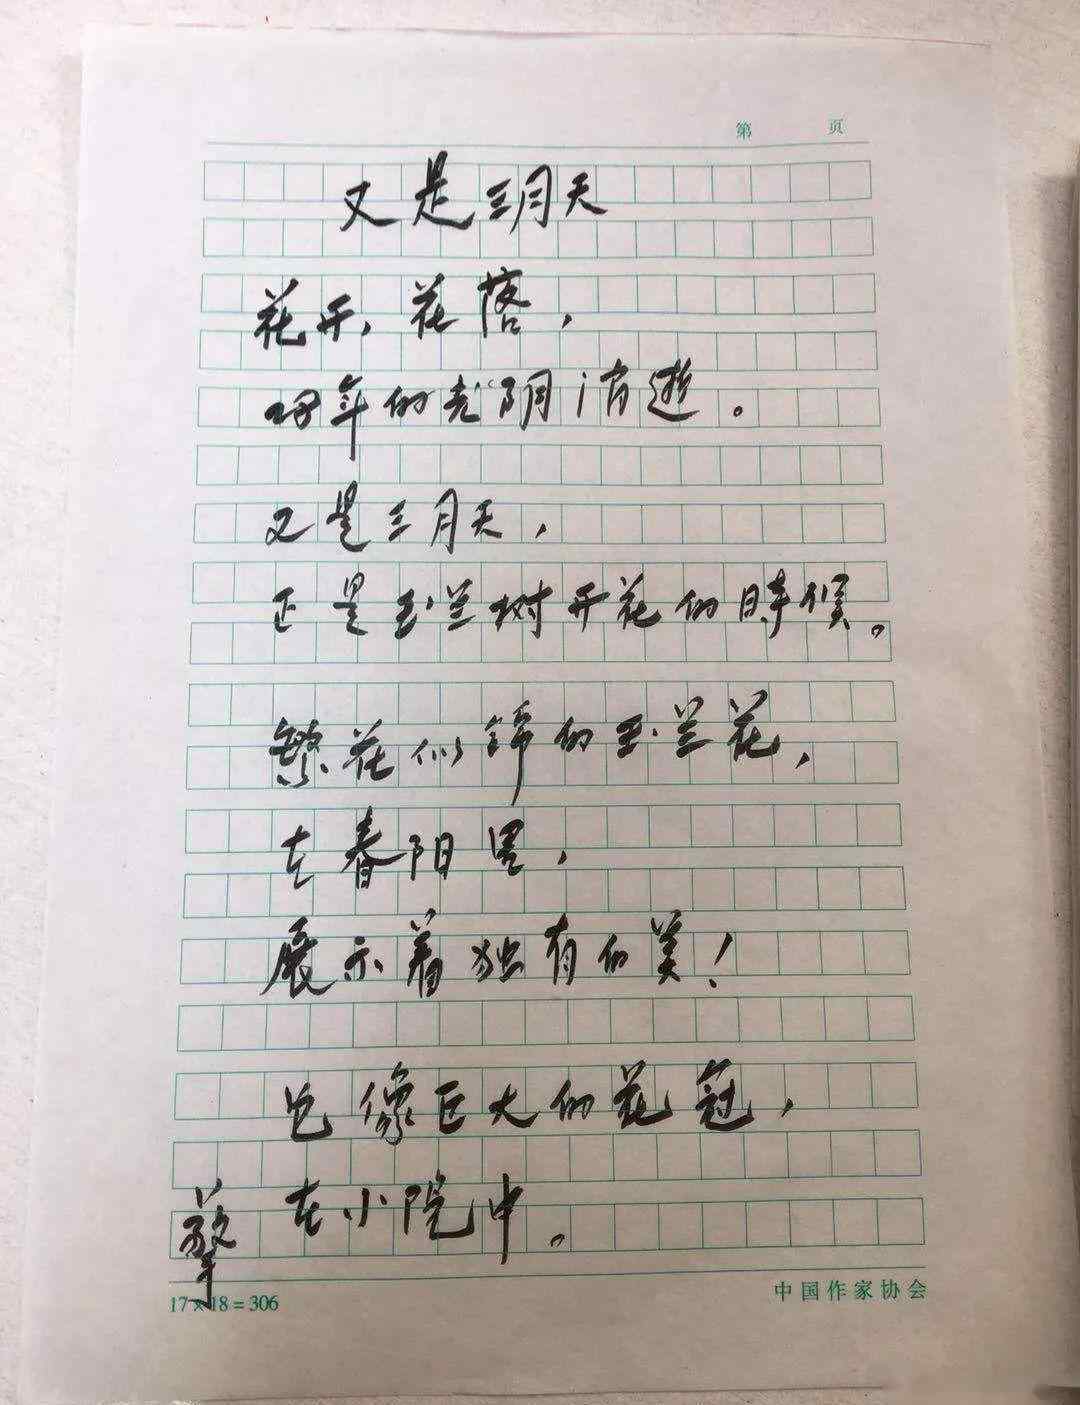 第 页
又是三月天
花开、花落，
四年的光阴消逝。
又是三月天，
正是玉兰树开花的時候。
繁花似锦的玉兰花，
在春阳里，
展示着独有的美！
它像巨大的花冠，
擎在小院中。
17×18=306 中国作家协会